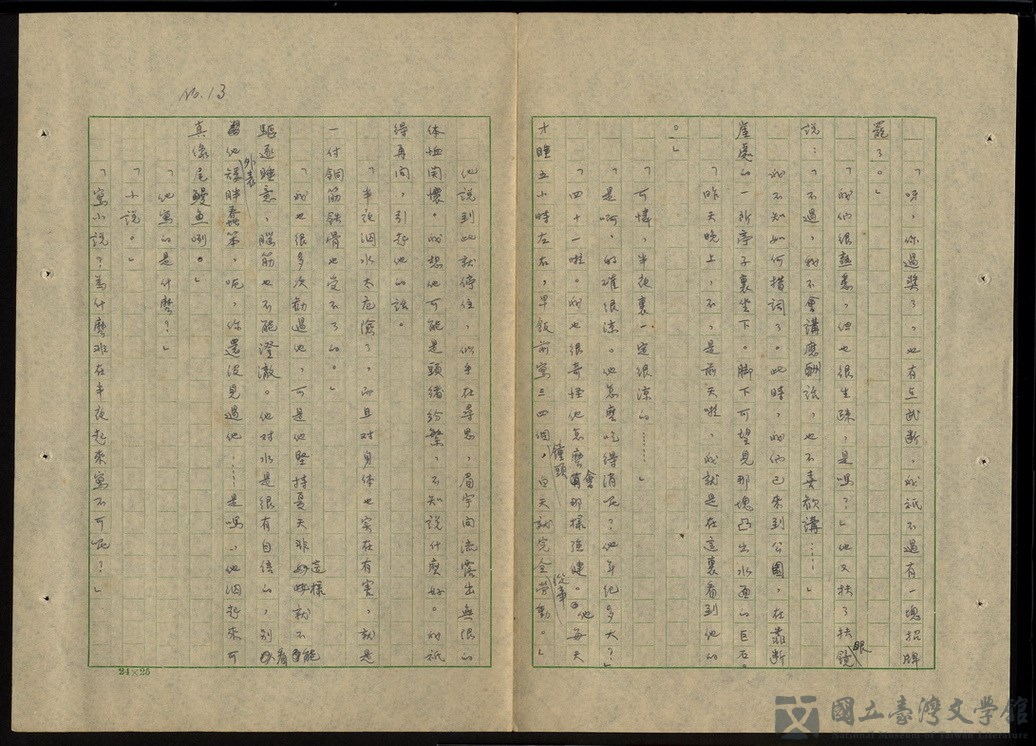 No.13
「呀，你過獎了，也有点武断，我祇不過有一塊招牌
罷了。」
「我們很熟悉，但也很生疎，是嗎？」他又扶了扶眼鏡
說：「不過，我不會講應酬話，也不喜歡講……」
我不知如何措詞了。此時，我們已來到公園，在靠断
崖處的一所亭子裏坐下。脚下可望見那塊凸出水面的巨石。
「昨天晚上，不，是前天啦，我就是在這裏看到他的
。」
「可憐，半夜裏一定很凉的……」
「是啊，的確很凉。他怎麼吃得消呢？他年紀多大？」
「四十一啦。我也很奇怪他怎麼會有那樣強健。他每天
才睡五小時左右，早飯前寫三四個鐘頭，白天就完全從事勞動。」
他說到此就停住，似乎在尋思，眉宇间流露出無限的
体恤関懷。我想他可能是頭緒紛繁，不知說什麼好。我祇
得再问，引起他的話。
「半夜泅水太危險了，而且对身体也实在有害，就是
一付銅筋鉄骨也受不了的。」
「我也很多次勸過他，可是他堅持夏天非這樣就不能
驅逐睡意，腦筋也不能澄澈。他对水是很有自信的，別看
他外表胖蠢笨。呃，你還没見過他……是嗎，他泅起來可
真像尾鰻魚咧。」
「他寫的是什麼？」
「小說。」
「寫小說？為什麼非在半夜起來寫不可呢？」
24×25
國立臺灣文學館
National Museum of Taiwan Literature